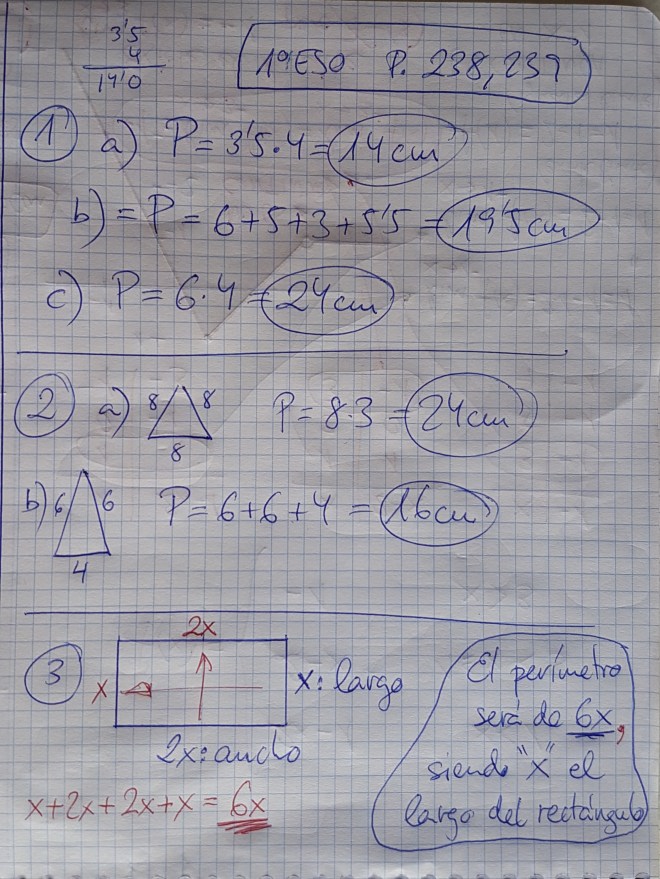 3'5
4
14'0
1ºESO P. 238, 239
1 a) P = 3'5·4 = 14cm
b) = P = 6+5+3+5'5 = 19'5cm
c) P = 6·4 = 24cm
2 a) 8 8 P = 8·3 = 24cm
8
b) 6 6 P = 6+6+4 = 16cm
4
2x
3 x x: largo
2x: ancho
x+2x+2x+x = 6x
El perímetro
será de 6x,
siendo "x" el
largo del rectángulo